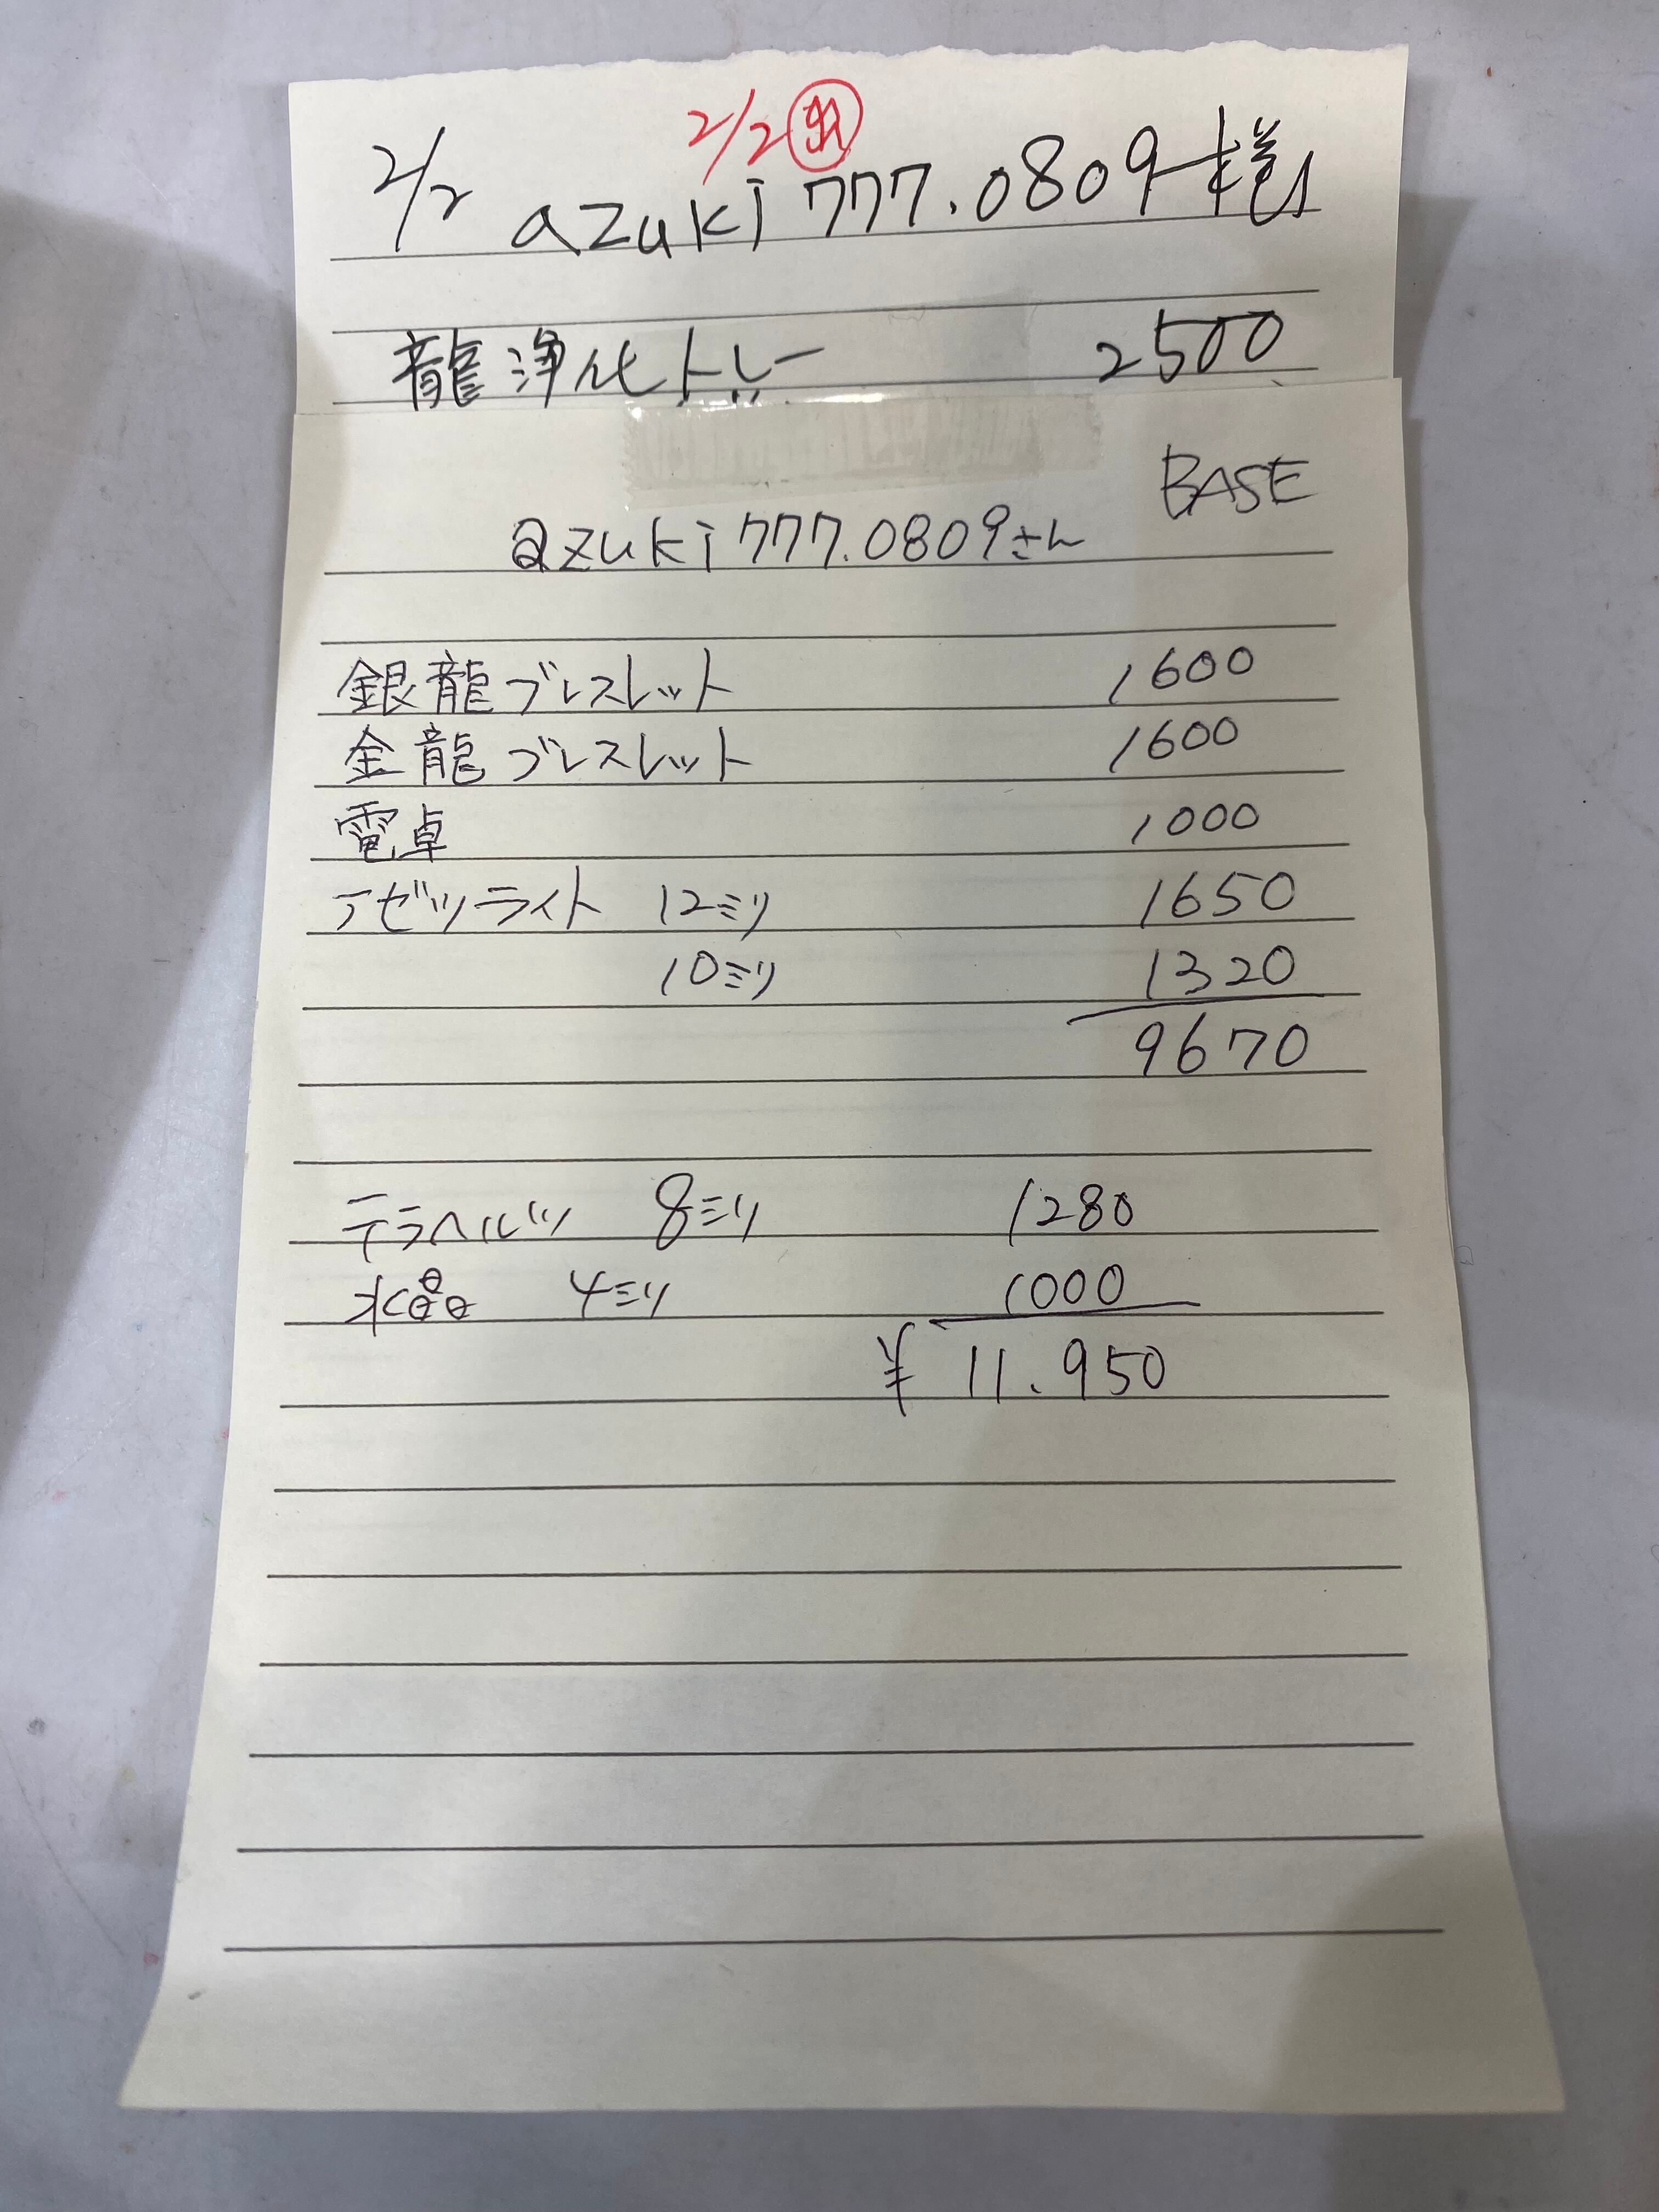 2/2
2/2 azuki777.0809様
龍浄化トレー 2500
BASE
azuki777.0809さん
銀龍ブレスレット 1600
金龍ブレスレット 1600
電卓 1000
アゼツライト 12ミリ 1650
10ミリ 1320
9670
テラヘルツ 8ミリ 1280
水晶 4ミリ 1000
¥11.950